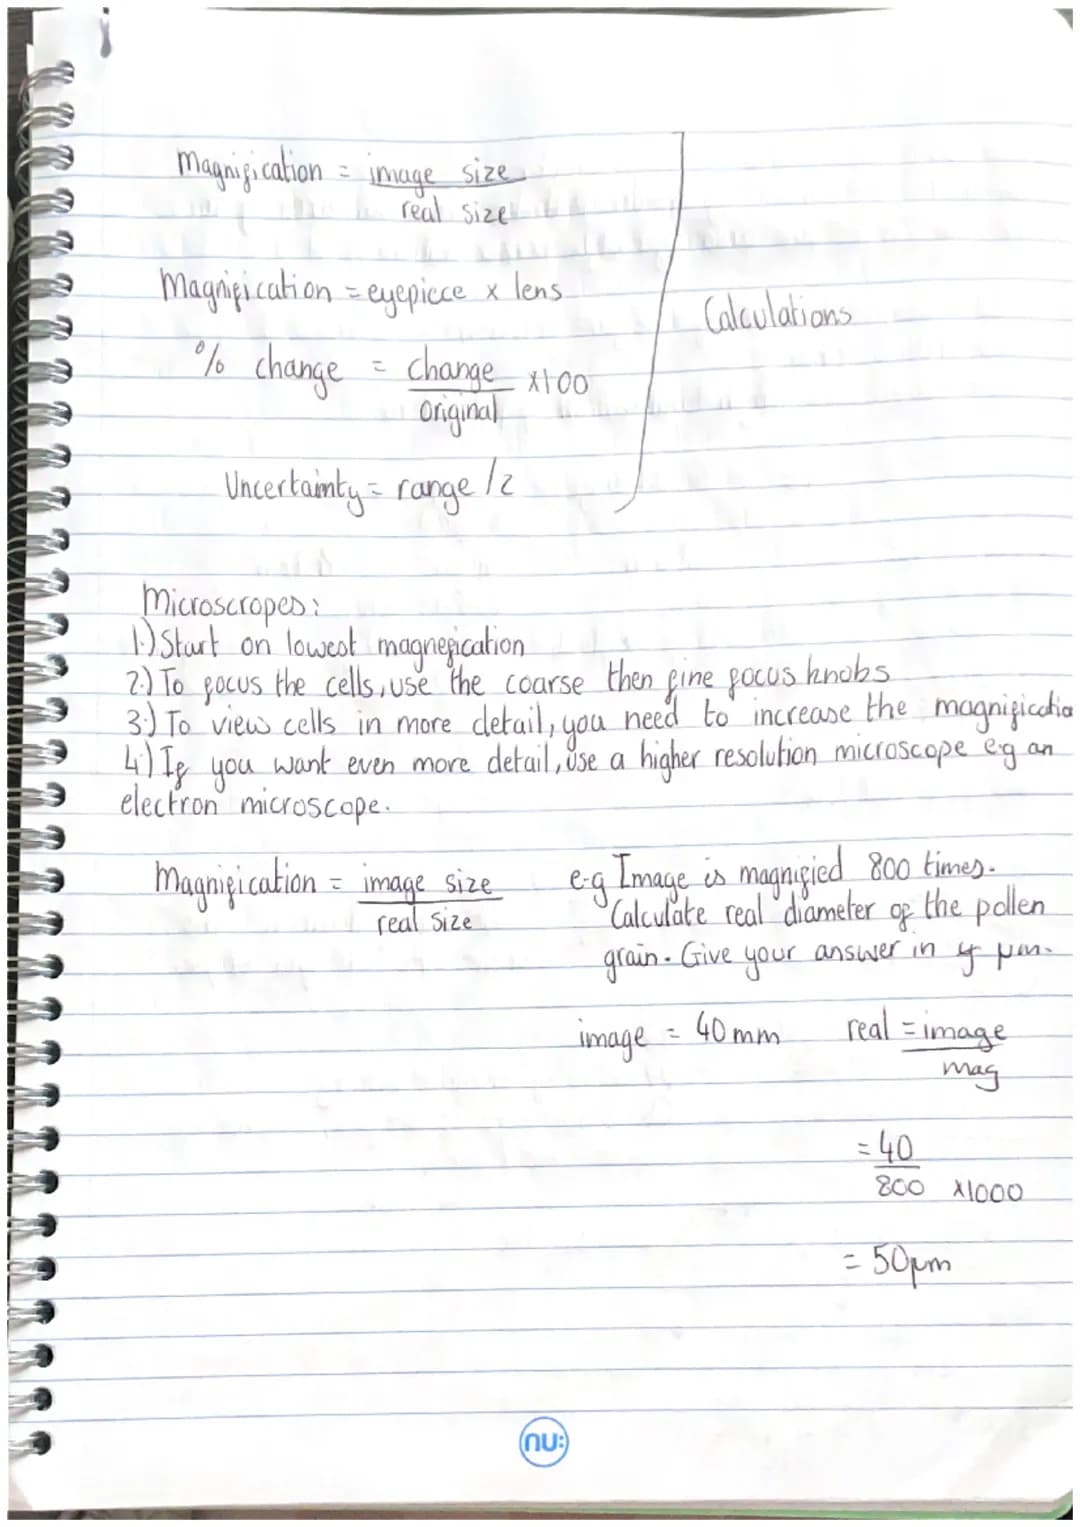 Magnification = image size
real size
Magnification = eyepiece x lens
Calculations
% change = change x100
original
Uncertainty = range /2
Microscropes:
1.) Start on lowest magnefication
2.) To focus the cells, use the coarse then fine focus knobs
3.) To view cells in more detail, you need to increase the magnificatio
4.) If you want even more detail, use a higher resolution microscope eg an
electron microscope.
Magnification = image size
real size
e.g Image is magnified 800 times.
Calculate real diameter of the pollen
grain. Give your answer in μm.
image = 40mm real = image
mag
= 40
800 x1000
= 50μm
nu: